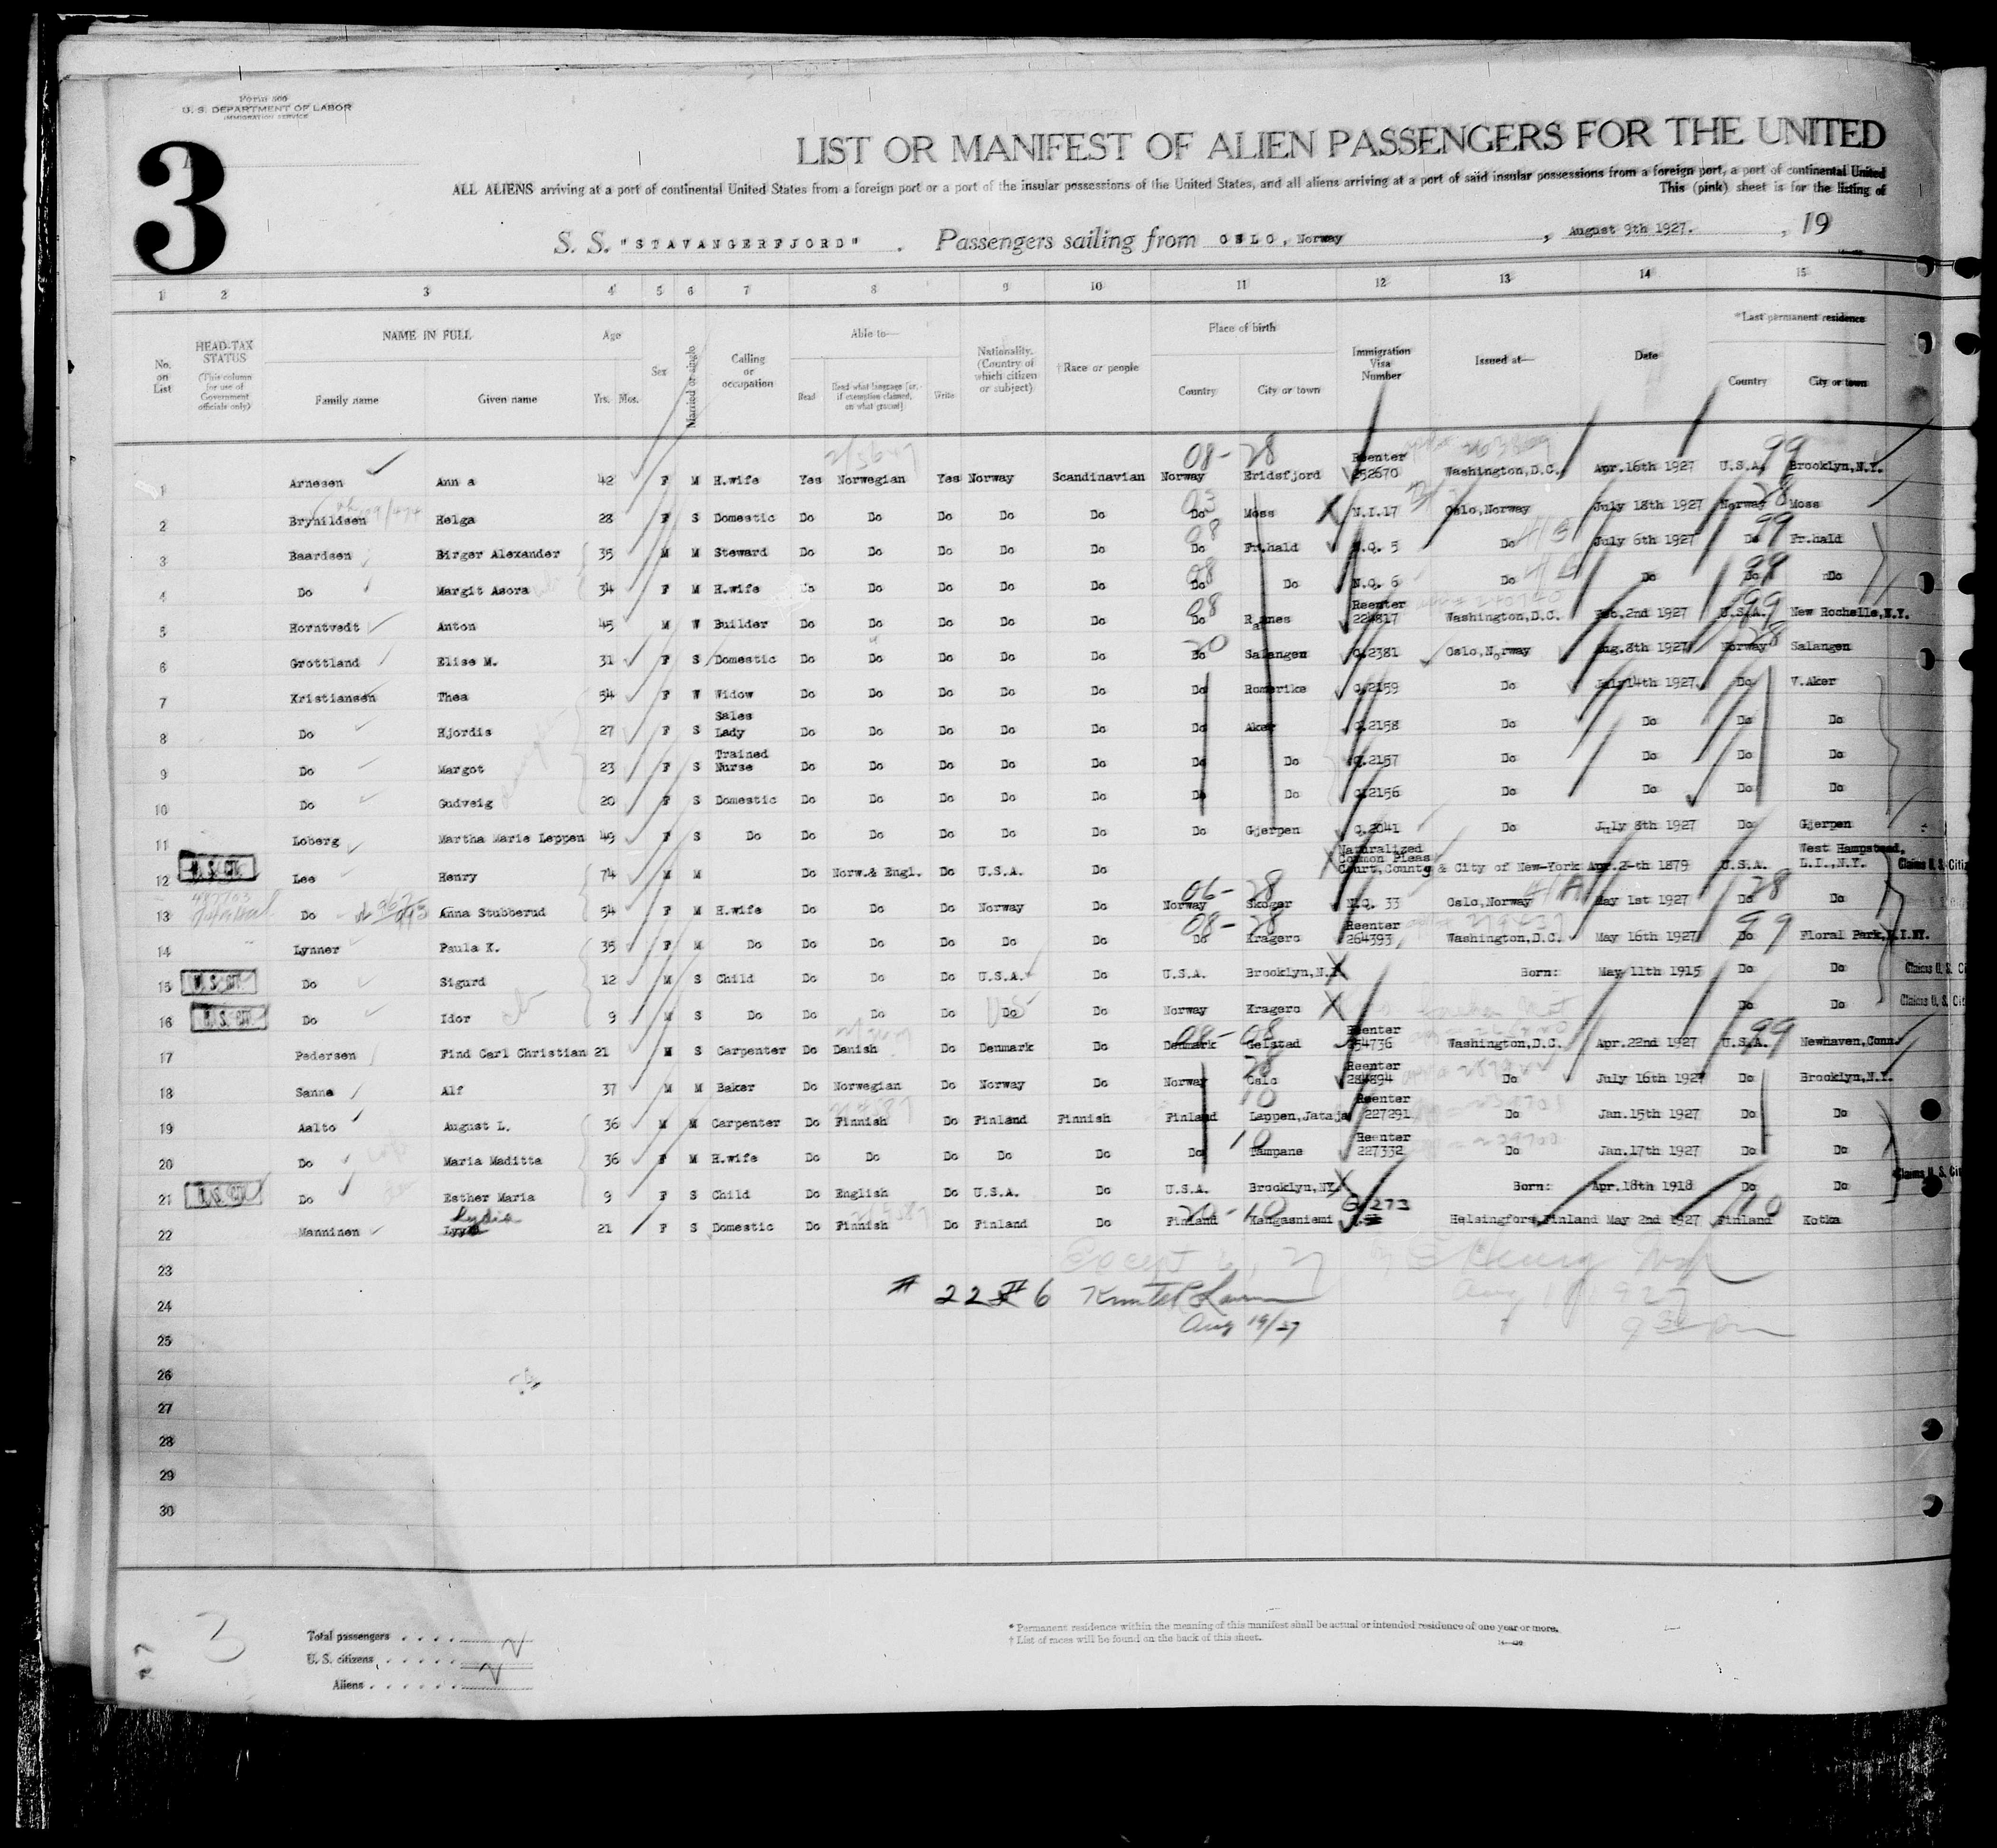 Form 500
U. S. DEPARTMENT OF LABOR
IMMIGRATION SERVICE
3
LIST OR MANIFEST OF ALIEN PASSENGERS FOR THE UNITED
ALL ALIENS arriving at a port of continental United States from a foreign port or a port of the insular possessions of the United States, and all aliens arriving at a port of said insular possessions from a foreign port, a port of continental United
This (pink) sheet is for the listing of
S. S. "STAVANGERFJORD" . Passengers sailing from OSLO, Norway , August 9th 1927. , 19
1 2 3 4 5 6 7 8 9 10 11 12 13 14 15
No. on List
HEAD-TAX STATUS (This column for use of Government officials only)
NAME IN FULL Family name Given name
Age Yrs. Mos.
Sex
Married or single
Calling or occupation
Able to— Read Read what language [or, if exemption claimed, on what ground] Write
Nationality. (Country of which citizen or subject)
†Race or people
Place of birth Country City or town
Immigration Visa Number
Issued at—
Date
*Last permanent residence Country City or town
08-28 99
1 Arnesen Ann a 42 F M H.wife Yes Norwegian Yes Norway Scandinavian Norway Eridsfjord Reenter 252670 Washington,D.C. Apr.16th 1927 U.S.A. Brooklyn,N.Y.
2 Brynildsen Helga 28 F S Domestic Do Do Do Do Do Do Moss N.I.17 Oslo,Norway July 18th 1927 Norway 28 Moss
3 Baardsen Birger Alexander 35 M M Steward Do Do Do Do Do 08 Do Fr.hald N.Q. 5 Do July 6th 1927 99 Do Fr.hald
4 Do Margit Asora 34 F M H.wife Do Do Do Do Do 08 Do Do N.Q. 6 Do Do 99 Do Do
5 Horntvedt Anton 45 M W Builder Do Do Do Do Do 08 Do Ramnes Reenter 224817 Washington,D.C. Feb.2nd 1927 99 U.S.A. New Rochelle,N.Y.
6 Grottland Elise M. 31 F S Domestic Do Do Do Do Do 20 Do Salangen Q.2381 Oslo,Norway Aug.8th 1927 Norway 28 Salangen
7 Kristiansen Thea 54 F W Widow Do Do Do Do Do Do Romerike Q.2159 Do July 14th 1927 Do V.Aker
8 Do Hjordis 27 F S Sales Lady Do Do Do Do Do Do Aker Q.2158 Do Do Do Do
9 Do Margot 23 F S Trained Nurse Do Do Do Do Do Do Do Q.2157 Do Do Do Do
10 Do Gudveig 20 F S Domestic Do Do Do Do Do Do Do Q.2156 Do Do Do Do
11 Loberg Martha Marie Leppen 49 F S Do Do Do Do Do Do Do Gjerpen Q.2041 Do July 8th 1927 Do Gjerpen
12 U. S. CIT. Lee Henry 74 M M Do Norw.& Engl. Do U.S.A. Do Naturalized Common Pleas Court,County & City of New-York Apr.2-th 1879 U.S.A. West Hampstead, L.I.,N.Y. Claims U. S. Citiz
13 Do Anna Stubberud 54 F M H.wife Do Do Do Norway Do 06-28 Norway Skoger N.Q. 33 Oslo,Norway May 1st 1927 28 Do Do
14 Lynner Paula K. 35 F M Do Do Do Do Do Do 08-28 Do Kragero Reenter 264393 Washington,D.C. May 16th 1927 99 Do Floral Park,L.I.NY.
15 U. S. CIT. Do Sigurd 12 M S Child Do Do Do U.S.A. Do U.S.A. Brooklyn,N.Y. Born: May 11th 1915 Do Do Claims U. S. Ci
16 U. S. CIT. Do Idor 9 M S Do Do Do Do Do Do Norway Kragero Do Do Claims U. S. Cit
17 Pedersen Find Carl Christian 21 M S Carpenter Do Danish Do Denmark Do 08-08 Denmark Gelstad Reenter 254736 Washington,D.C. Apr.22nd 1927 U.S.A. 99 Newhaven,Conn.
18 Sanne Alf 37 M M Baker Do Norwegian Do Norway Do Norway 28 Oslo Reenter 284894 Do July 16th 1927 Do Brooklyn,N.Y.
19 Aalto August L. 36 M M Carpenter Do Finnish Do Finland Finnish Finland 10 Lappen,Jataja Reenter 227291 Do Jan.15th 1927 Do Do
20 Do Maria Maditta 36 F M H.wife Do Do Do Do Do Do 10 Tampane Reenter 227332 Do Jan.17th 1927 Do Do
21 U. S. CIT. Do Esther Maria 9 F S Child Do English Do U.S.A. Do U.S.A. Brooklyn,NY. Born: Apr.18th 1918 Do Do Claims U. S. Cit
22 Manninen Lydia 21 F S Domestic Do Finnish Do Finland Do 20-10 Finland Kangasniemi 273 Helsingfors,Finland May 2nd 1927 Finland 10 Kotka
23
24 # 22 # 6
25 Aug 19/27
26
27
28
29
30
3
Total passengers
U. S. citizens
Aliens
* Permanent residence within the meaning of this manifest shall be actual or intended residence of one year or more.
† List of races will be found on the back of this sheet.